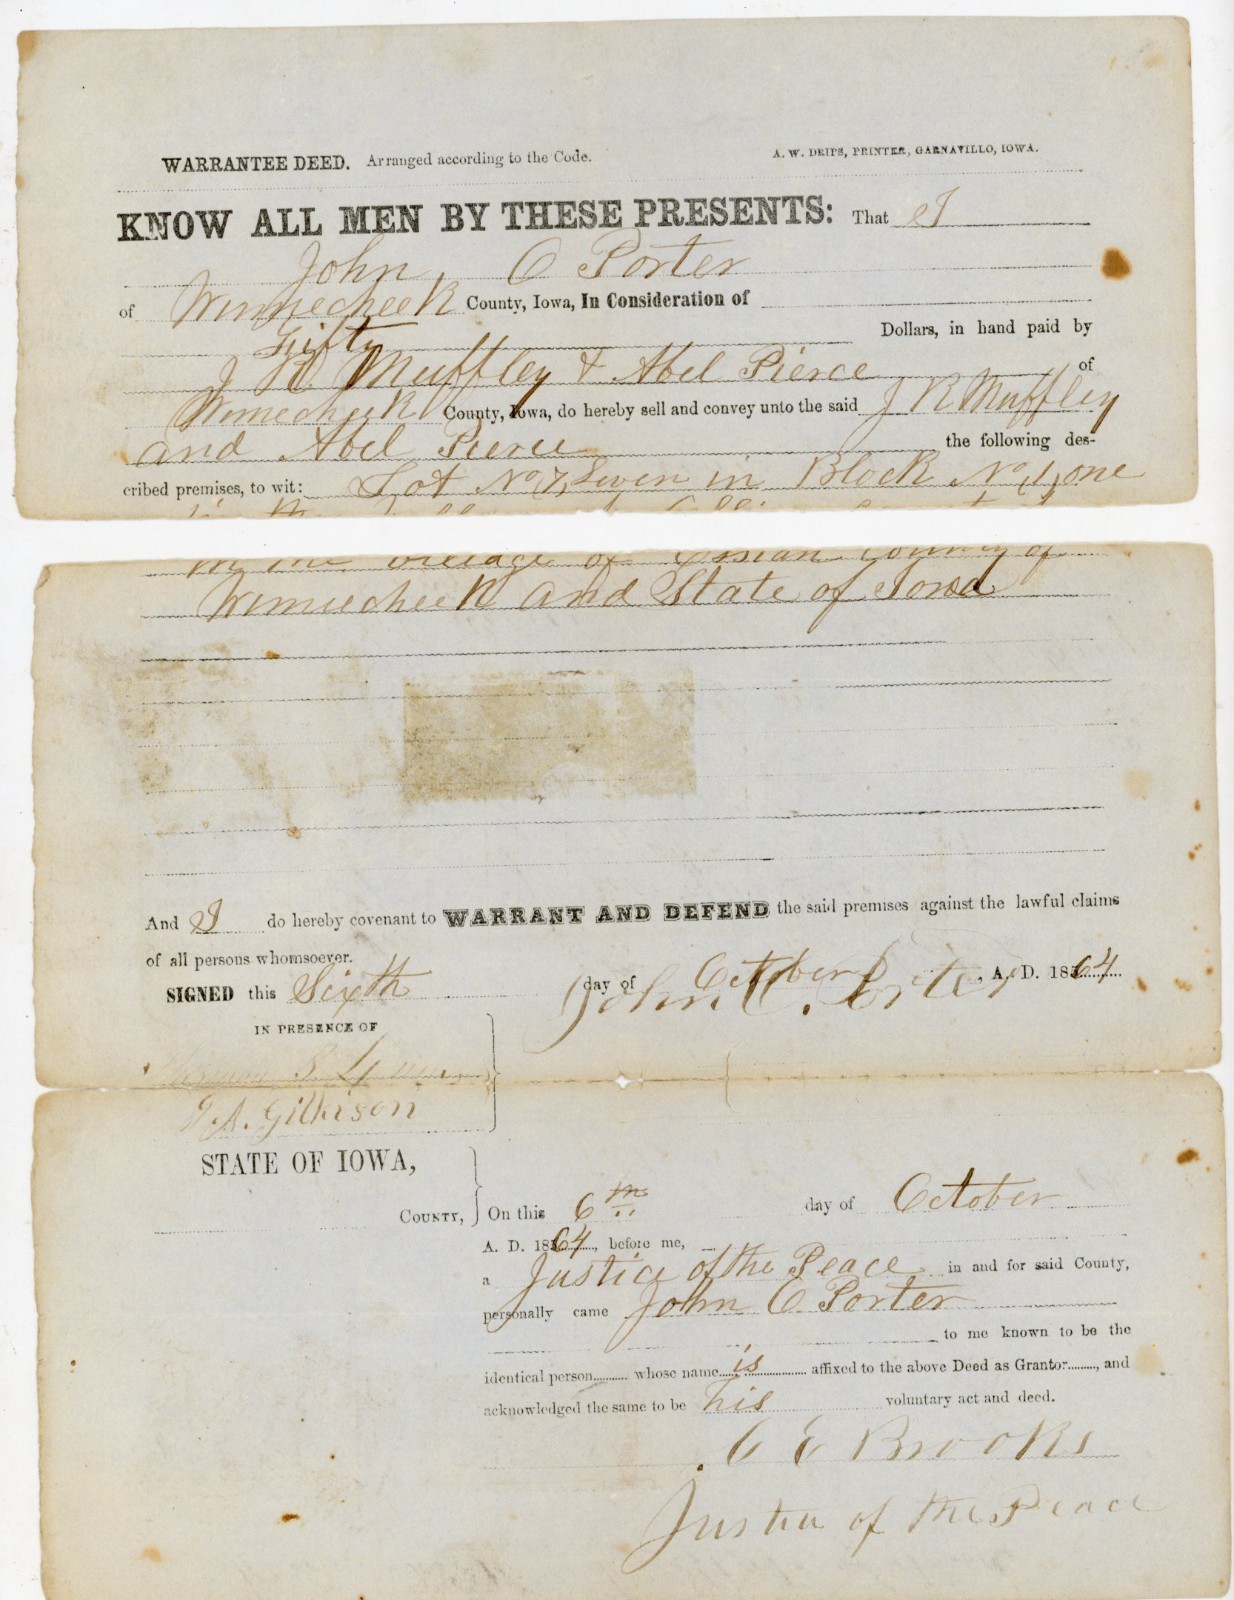 WARRANTEE DEED. Arranged according to the Code. A. W. DRIPS, PRINTER, GARNAVILLO, IOWA.
KNOW ALL MEN BY THESE PRESENTS: That I
John C Porter
of Winnecheek County, Iowa, In Consideration of
Fifty Dollars, in hand paid by
J R Muffley & Abel Pierce of
Winnecheek County, Iowa, do hereby sell and convey unto the said J R Muffley
and Abel Pierce the following des-
cribed premises, to wit: Lot No 7, Seven in Block No (1) one
in the village of Ossian County of
Winnecheek and State of Iowa
And I do hereby covenant to WARRANT AND DEFEND the said premises against the lawful claims
of all persons whomsoever.
SIGNED this Sixth day of October, A. D. 1864
John C. Porter
IN PRESENCE OF
S.
T. A. Gilkison
STATE OF IOWA,
COUNTY, On this 6th day of October
A. D. 1864, before me,
a Justice of the Peace in and for said County,
personally came John C Porter
to me known to be the
identical person whose name is affixed to the above Deed as Grantor, and
acknowledged the same to be his voluntary act and deed.
C E Brooks
Justice of the Peace